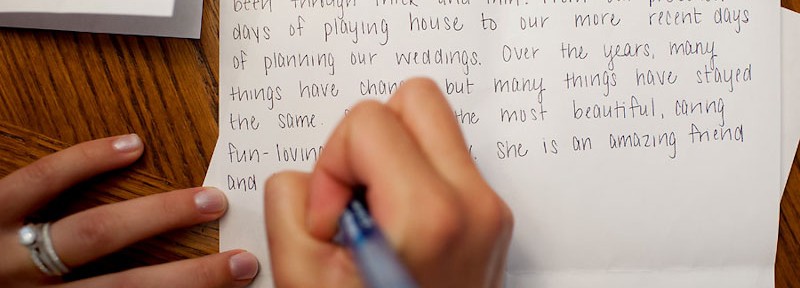 been through thick and thin. From our
days of playing house to our more recent days
of planning our weddings. Over the years, many
things have but many things have stayed
the same. the most beautiful, caring
fun-loving She is an amazing friend
and